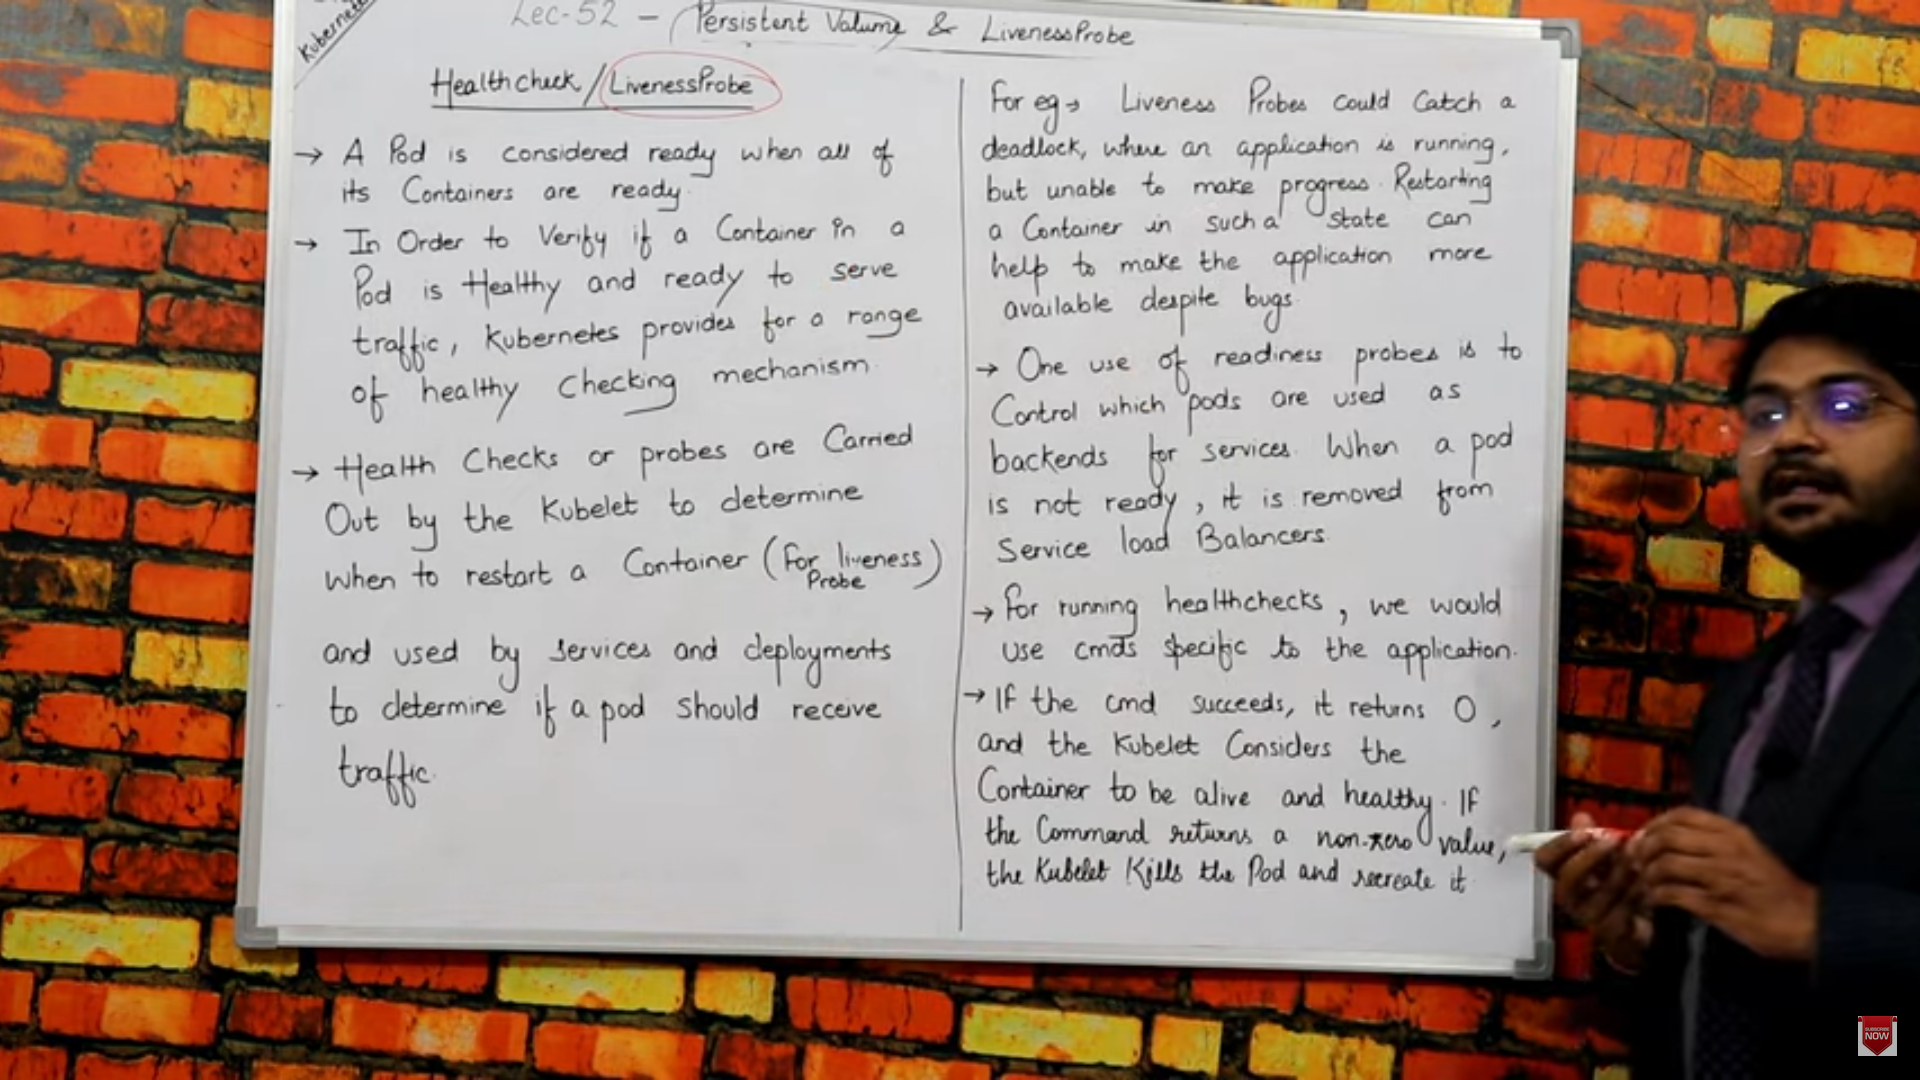 Kubernetes
Lec-52 - Persistent Volume & LivenessProbe
Healthcheck / LivenessProbe
→ A Pod is considered ready when all of
its Containers are ready.
→ In Order to Verify if a Container in a
Pod is Healthy and ready to serve
traffic, Kubernetes provides for a range
of healthy Checking mechanism.
→ Health Checks or probes are Carried
Out by the Kubelet to determine
when to restart a Container (for liveness
Probe)
and used by services and deployments
to determine if a pod should receive
traffic.
For eg → Liveness Probes could Catch a
deadlock, where an application is running,
but unable to make progress. Restarting
a Container in such a state can
help to make the application more
available despite bugs.
→ One use of readiness probes is to
Control which pods are used as
backends for services. When a pod
is not ready, it is removed from
Service load Balancers.
→ For running healthchecks, we would
use cmds specific to the application.
→ If the cmd succeeds, it returns 0,
and the Kubelet Considers the
Container to be alive and healthy. If
the Command returns a non-zero value,
the Kubelet Kills the Pod and recreate it.
SUBSCRIBE
NOW